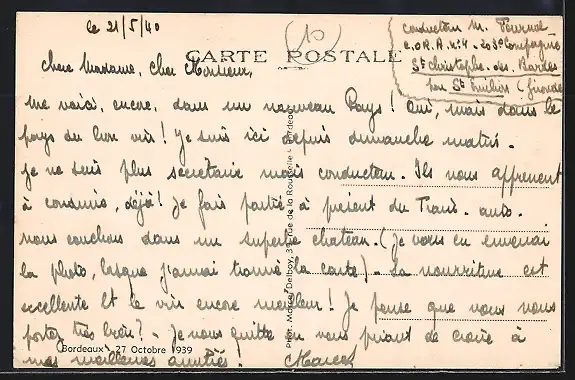 le 21/5/40
CARTE POSTALE
conducteur M.
C.O.R.A. N°4 - Compagnie
St Christophe-des-Bardes
par St Emilion (Gironde
Chère Madame, Cher Monsieur,
Me voici, encore, dans un nouveau Pays! Oui, mais dans le
pays du bon vin! Je suis ici depuis dimanche matin.
Je ne suis plus secrétaire mais conducteur. Ils nous apprennent
à conduire, déjà! Je fais partie à présent du Train-auto.
Nous couchons dans un superbe chateau. (Je vous en enverrai
la photo, lorsque j'aurai trouvé la carte) - La nourriture est
excellente et le vin encore meilleur! Je pense que vous vous
portez très bien? - Je vous quitte en vous priant de croire à
mes meilleures amitiés! Marcel
Bordeaux - 27 Octobre 1939
Phot. Marcel Delboy, rue de la Rousselle - Bordeaux